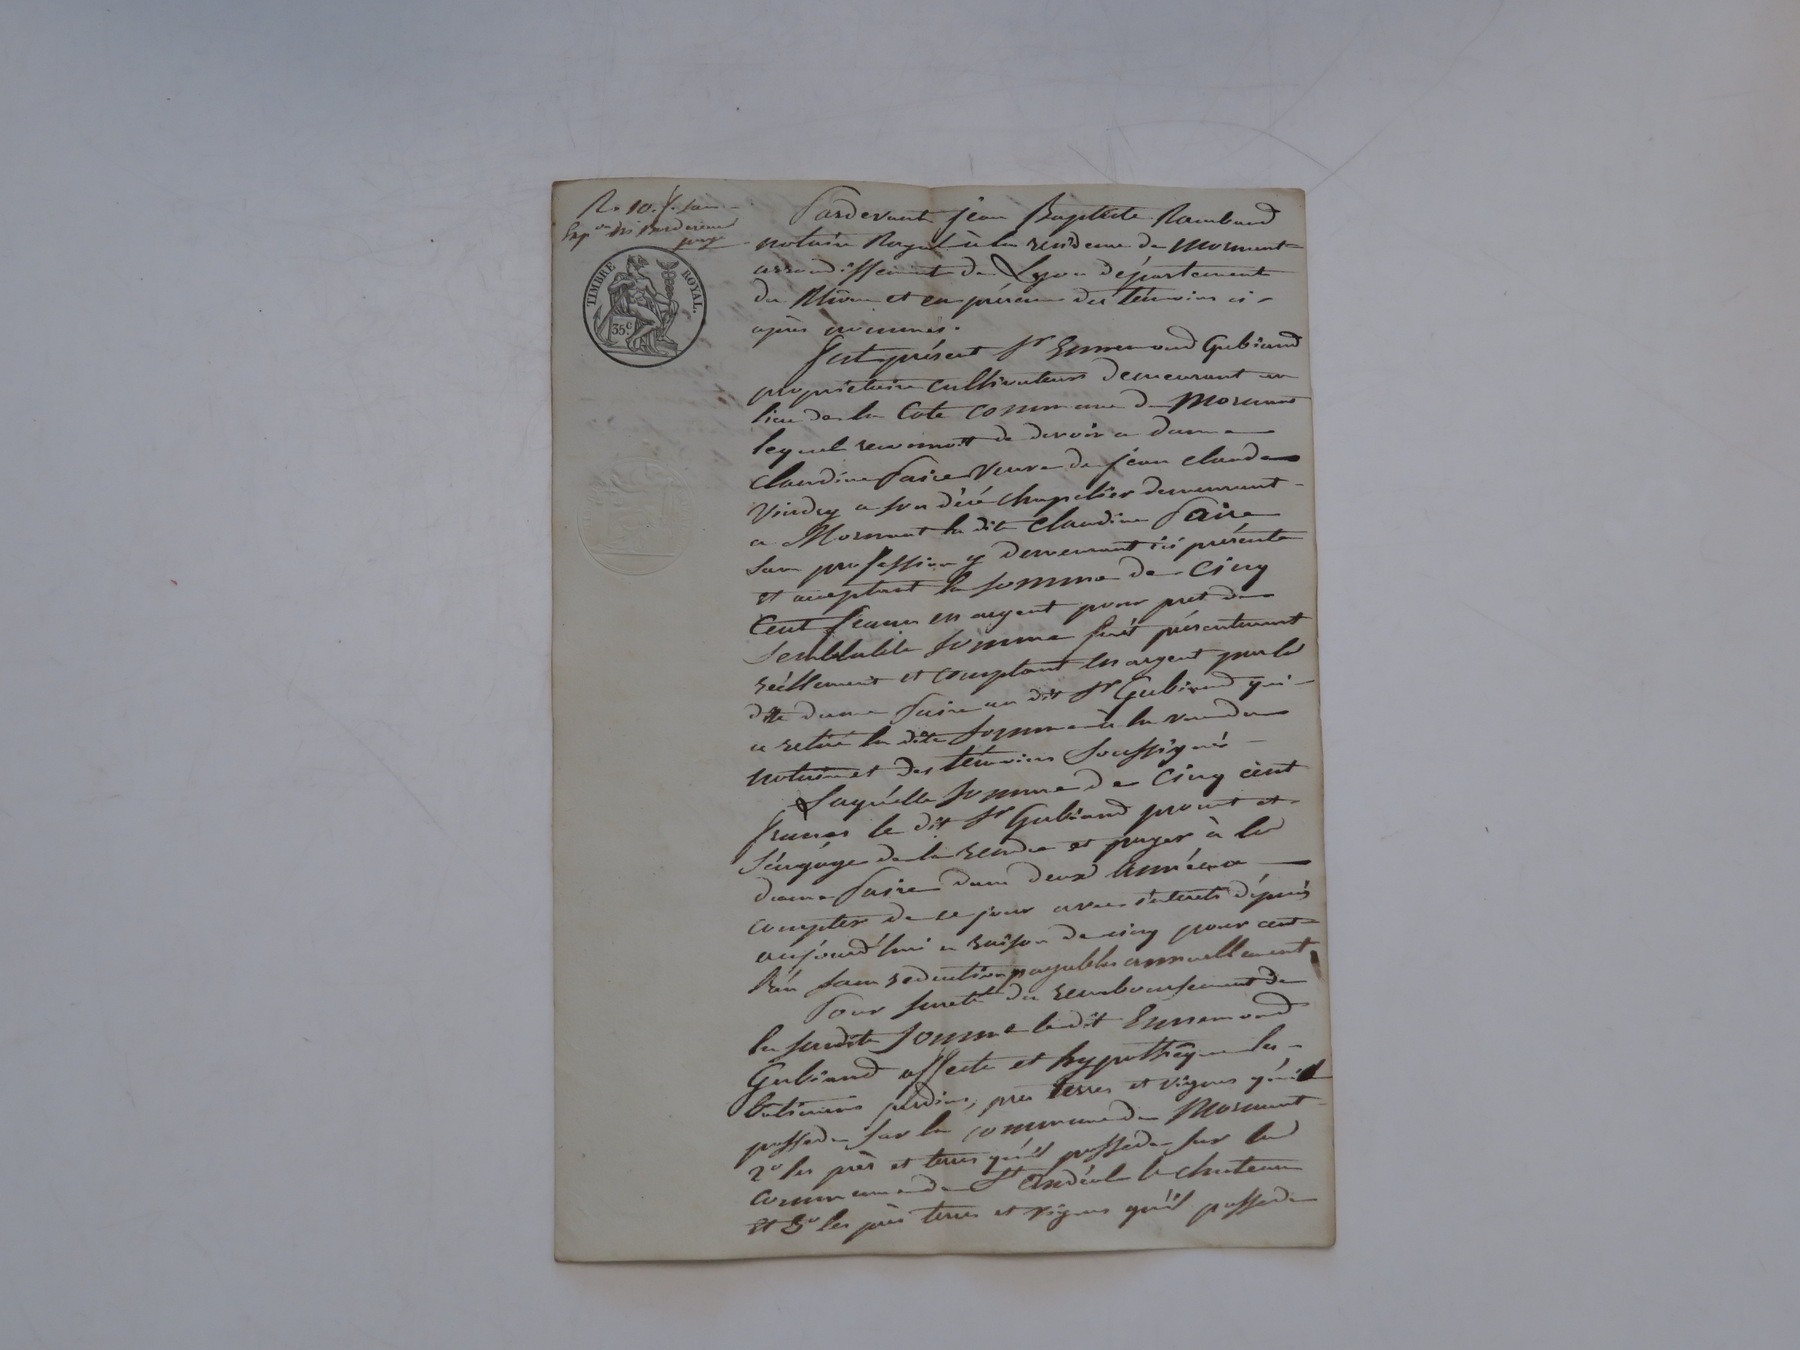 R. 10. f.
TIMBRE ROYAL.
35 c
Pardevant jéan Baptiste Rambaud
notaire Royal à la résidence de Mornant
arrondissement de Lyon département
du Rhône et en présence des témoins ci-
après nommés.
fut présent Sr Ennemond Gubiand
propriétaire cultivateur demeurant au
lieu de la Cote commune de Mornant
lequel reconnoit de devoir a dame
Claudine faire veuve de jean claude
Vindry a son décé chapelier demeurant
a Mornant la dite Claudine faire
sans profession y demeurant ici présente
et acceptant la somme de Cinq
Cent francs en argent pour pret de
semblable somme fait présentement
réellement et comptant en argent par la
dite dame faire au dit Sr Gubiand qui
a retiré la dite somme à la vue du
notaire et des témoins soussignés
Laquelle somme de Cinq cent
francs le dit Sr Gubiand promt et
s'éngage de la rendre et payer à la
dame faire dans deux années a
compter de ce jour avec intérets dépuis
aujourd'hui a raison de cinq pour cent
l'an sans réduction payables annuellement
Pour sureté du remboursement de
la susdite somme ledit Ennemond
Gubiand affecte et hypothéque les
batimens jardins, prés terres et vignes qu'il
possede sur la commune de Mornant
2o les prés et terres qu'il possède sur la
commune de St Andéol le chateau
et 3o les prés terres et vignes qu'il possede